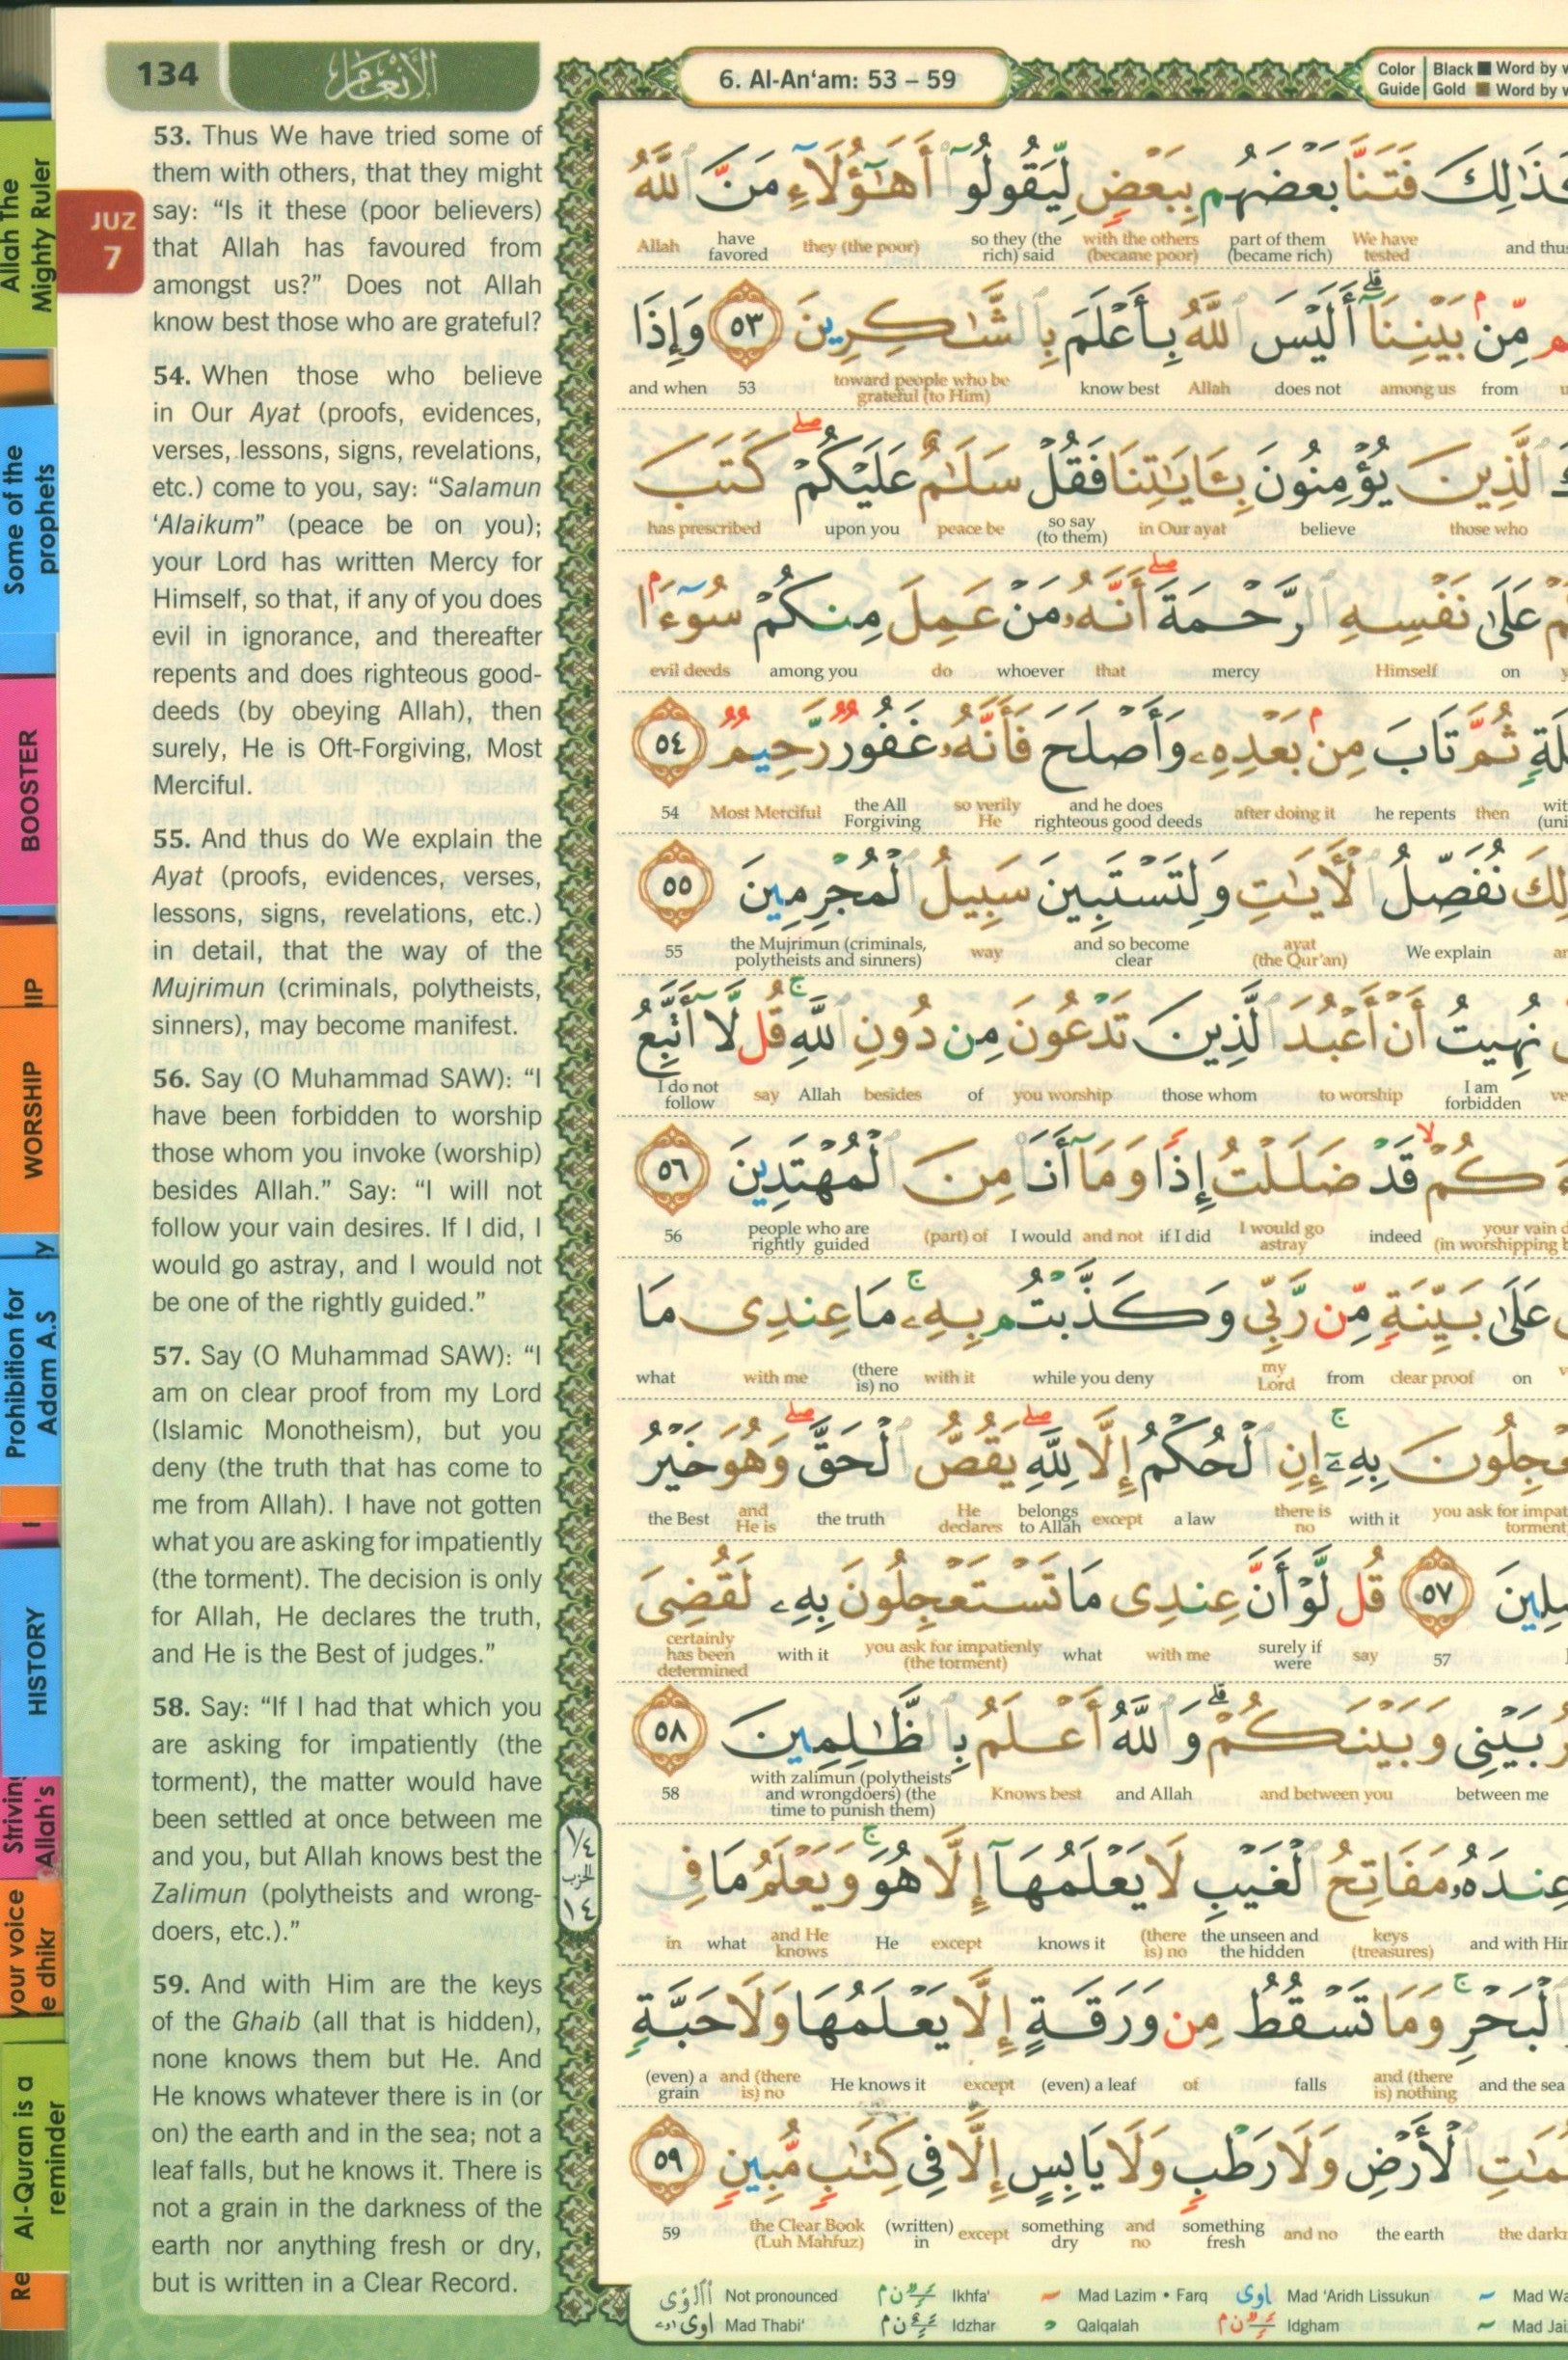 134
الأنعام
6. Al-An‘am: 53 – 59
Color Guide
Black Word by
Gold Word by
Allah The
Mighty Ruler
JUZ
7
Some of the
prophets
BOOSTER
WORSHIP
Prohibition for
Adam A.S
HISTORY
Allah's
your voice
Al-Quran is a
reminder
53. Thus We have tried some of
them with others, that they might
say: “Is it these (poor believers)
that Allah has favoured from
amongst us?” Does not Allah
know best those who are grateful?
54. When those who believe
in Our Ayat (proofs, evidences,
verses, lessons, signs, revelations,
etc.) come to you, say: “Salamun
‘Alaikum” (peace be on you);
your Lord has written Mercy for
Himself, so that, if any of you does
evil in ignorance, and thereafter
repents and does righteous good-
deeds (by obeying Allah), then
surely, He is Oft-Forgiving, Most
Merciful.
55. And thus do We explain the
Ayat (proofs, evidences, verses,
lessons, signs, revelations, etc.)
in detail, that the way of the
Mujrimun (criminals, polytheists,
sinners), may become manifest.
56. Say (O Muhammad SAW): “I
have been forbidden to worship
those whom you invoke (worship)
besides Allah.” Say: “I will not
follow your vain desires. If I did, I
would go astray, and I would not
be one of the rightly guided.”
57. Say (O Muhammad SAW): “I
am on clear proof from my Lord
(Islamic Monotheism), but you
deny (the truth that has come to
me from Allah). I have not gotten
what you are asking for impatiently
(the torment). The decision is only
for Allah, He declares the truth,
and He is the Best of judges.”
58. Say: “If I had that which you
are asking for impatiently (the
torment), the matter would have
been settled at once between me
and you, but Allah knows best the
Zalimun (polytheists and wrong-
doers, etc.).”
59. And with Him are the keys
of the Ghaib (all that is hidden),
none knows them but He. And
He knows whatever there is in (or
on) the earth and in the sea; not a
leaf falls, but he knows it. There is
not a grain in the darkness of the
earth nor anything fresh or dry,
but is written in a Clear Record.
١/٤
الحزب
١٤
فَتَنَّا بَعْضَهُم بِبَعْضٍ لِّيَقُولُوٓا۟ أَهَـٰٓؤُلَآءِ مَنَّ ٱللَّهُ
Allah have favored they (the poor) so they (the rich) said with the others (became poor) part of them (became rich) We have tested and thus
مِّنۢ بَيْنِنَآ ۗ أَلَيْسَ ٱللَّهُ بِأَعْلَمَ بِٱلشَّـٰكِرِينَ ٥٣ وَإِذَا
and when 53 toward people who be grateful (to Him) know best Allah does not among us from
ٱلَّذِينَ يُؤْمِنُونَ بِـَٔايَـٰتِنَا فَقُلْ سَلَـٰمٌ عَلَيْكُمْ ۖ كَتَبَ
has prescribed upon you peace be so say (to them) in Our ayat believe those who
عَلَىٰ نَفْسِهِ ٱلرَّحْمَةَ ۖ أَنَّهُۥ مَنْ عَمِلَ مِنكُمْ سُوٓءًۢا
evil deeds among you do whoever that mercy Himself on
ثُمَّ تَابَ مِنۢ بَعْدِهِۦ وَأَصْلَحَ فَأَنَّهُۥ غَفُورٌ رَّحِيمٌ ٥٤
54 Most Merciful the All Forgiving so verily He and he does righteous good deeds after doing it he repents then
نُفَصِّلُ ٱلْأَيَـٰتِ وَلِتَسْتَبِينَ سَبِيلُ ٱلْمُجْرِمِينَ ٥٥
55 the Mujrimun (criminals, polytheists and sinners) way and so become clear ayat (the Qur’an) We explain
نُهِيتُ أَنْ أَعْبُدَ ٱلَّذِينَ تَدْعُونَ مِن دُونِ ٱللَّهِ ۚ قُل لَّآ أَتَّبِعُ
I do not follow say Allah besides of you worship those whom to worship I am forbidden
قَدْ ضَلَلْتُ إِذًا وَمَآ أَنَا۠ مِنَ ٱلْمُهْتَدِينَ ٥٦
56 people who are rightly guided (part) of I would and not if I did I would go astray indeed your vain (in worshipping
عَلَىٰ بَيِّنَةٍ مِّن رَّبِّى وَكَذَّبْتُم بِهِۦ ۚ مَا عِندِى مَا
what with me (there is) no with it while you deny my Lord from clear proof on
بِهِۦٓ ۚ إِنِ ٱلْحُكْمُ إِلَّا لِلَّهِ ۖ يَقُصُّ ٱلْحَقَّ ۖ وَهُوَ خَيْرُ
the Best and He is the truth He declares belongs to Allah except a law there is no with it you ask for torment
٥٧ قُل لَّوْ أَنَّ عِندِى مَا تَسْتَعْجِلُونَ بِهِۦ لَقُضِىَ
certainly has been determined with it you ask for impatienly (the torment) what with me surely if were say 57
بَيْنِى وَبَيْنَكُمْ ۗ وَٱللَّهُ أَعْلَمُ بِٱلظَّـٰلِمِينَ ٥٨
58 with zalimun (polytheists and wrongdoers) (the time to punish them) Knows best and Allah and between you between me
عِندَهُۥ مَفَاتِحُ ٱلْغَيْبِ لَا يَعْلَمُهَآ إِلَّا هُوَ ۚ وَيَعْلَمُ مَا فِى
in what and He knows He except knows it (there is) no the unseen and the hidden keys (treasures) and with Him
ٱلْبَحْرِ ۚ وَمَا تَسْقُطُ مِن وَرَقَةٍ إِلَّا يَعْلَمُهَا وَلَا حَبَّةٍ
(even) a grain and (there is) no He knows it except (even) a leaf of falls and (there is) nothing and the sea
ٱلْأَرْضِ وَلَا رَطْبٍ وَلَا يَابِسٍ إِلَّا فِى كِتَـٰبٍ مُّبِينٍ ٥٩
59 the Clear Book (Luh Mahfuz) (written) in except something dry and no something fresh and no the earth the
Not pronounced Ikhfa' Mad Lazim • Farq Mad 'Aridh Lissukun Mad
Mad Thabi' Idzhar Qalqalah Idgham Mad